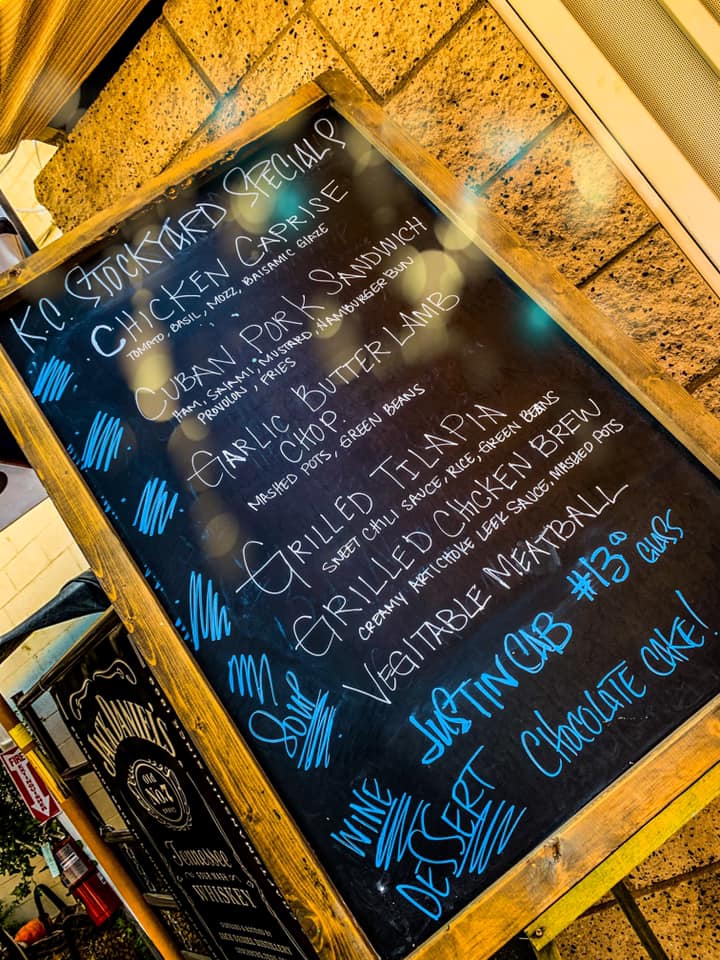 K.C. STOCKYARD SPECIALS
CHICKEN CAPRISE
TOMATO, BASIL, MOZZ, BALSAMIC GLAZE
CUBAN PORK SANDWICH
HAM, SALAMI, MUSTARD, HAMBURGER BUN
PROVOLON, FRIES
GARLIC BUTTER LAMB
CHOP
MASHED POTS, GREEN BEANS
GRILLED TILAPIA
SWEET CHILI SAUCE, RICE, GREEN BEANS
GRILLED CHICKEN BREW
CREAMY ARTICHOKE LEEK SAUCE, MASHED POTS
SOUP VEGITABLE MEATBALL
WINE JUSTIN CAB #13⁰⁰
DESSERT CHOCOLATE CAKE!
JACK DANIEL'S
OLD
No.7
Tennessee
WHISKEY
JACK DANIEL DISTILLERY
FIRE